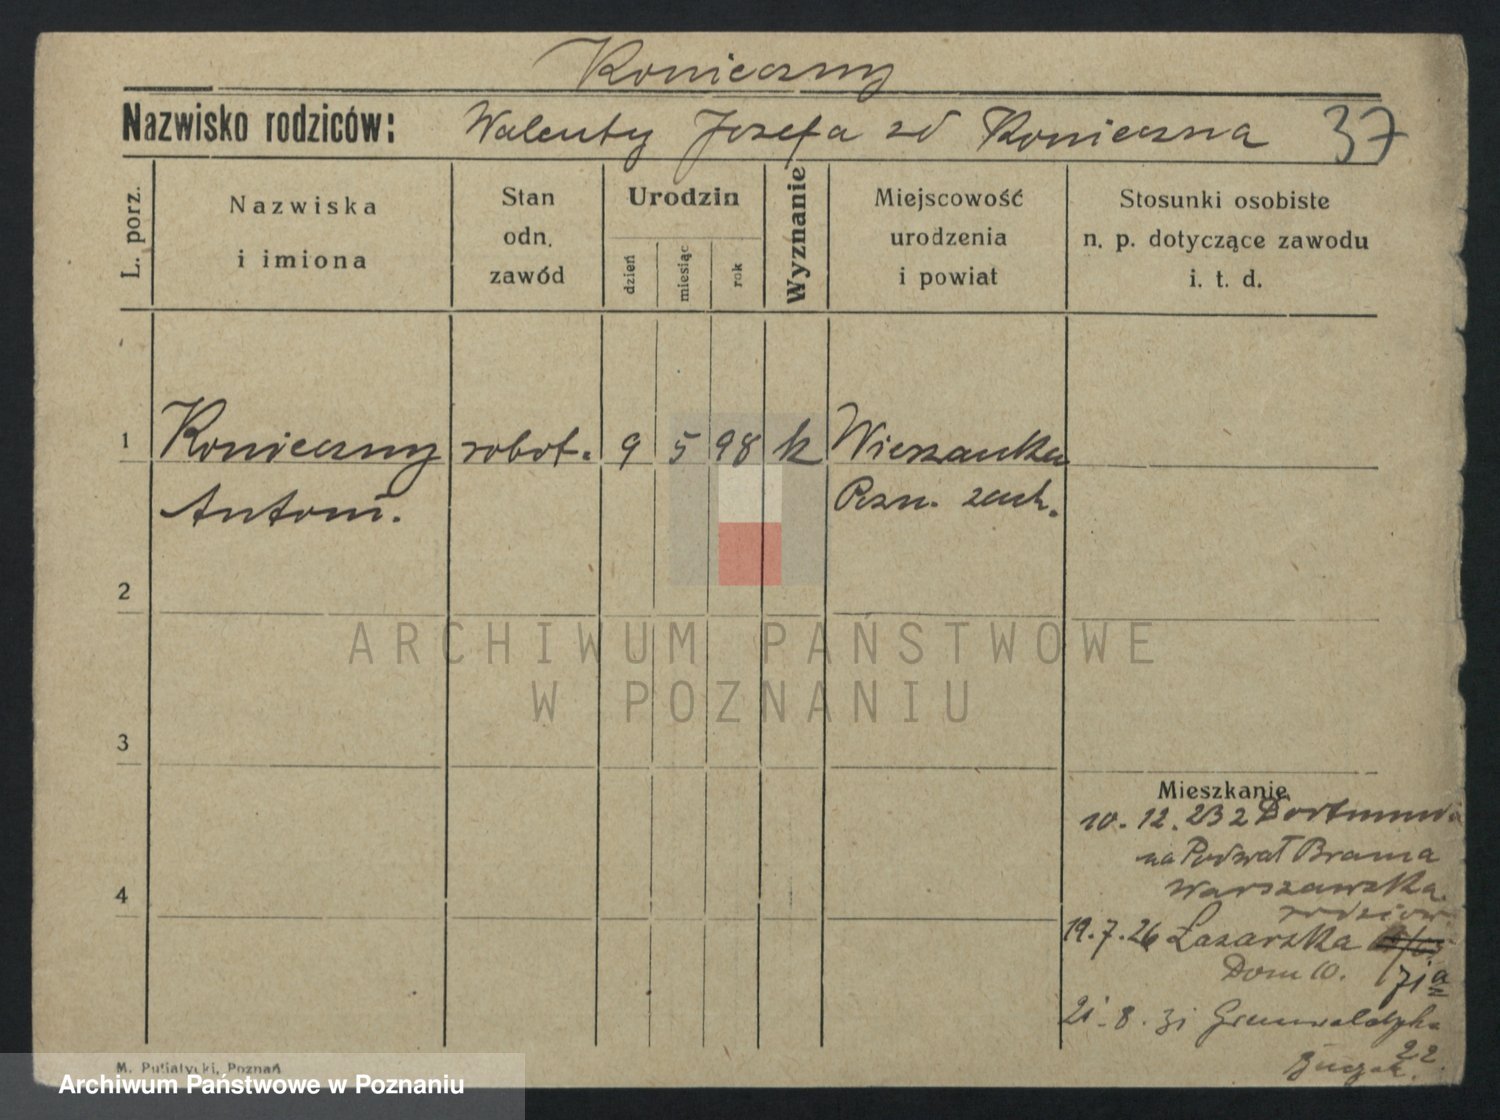 Konieczny
Nazwisko rodziców: Walenty Józefa zd Konieczna 37
L. porz.
Nazwiska
i imiona
Stan
odn.
zawód
Urodzin
dzień
miesiąc
rok
Wyznanie
Miejscowość
urodzenia
i powiat
Stosunki osobiste
n. p. dotyczące zawodu
i. t. d.
1 Konieczny robot. 9 5 98 k
Antoni. Pozn. zach.
2
ARCHIWUM PAŃSTWOWE
W POZNANIU
3
Mieszkanie
10. 12. 23 z Dortmunda
na Podwał Brama
4
Warszawska
rodziców
19. 7. 26 Łazarska
Dom 10. 7ia
21. 8. 31 Grunwaldzka
22.
M. Putiatycki, Poznań
Archiwum Państwowe w Poznaniu